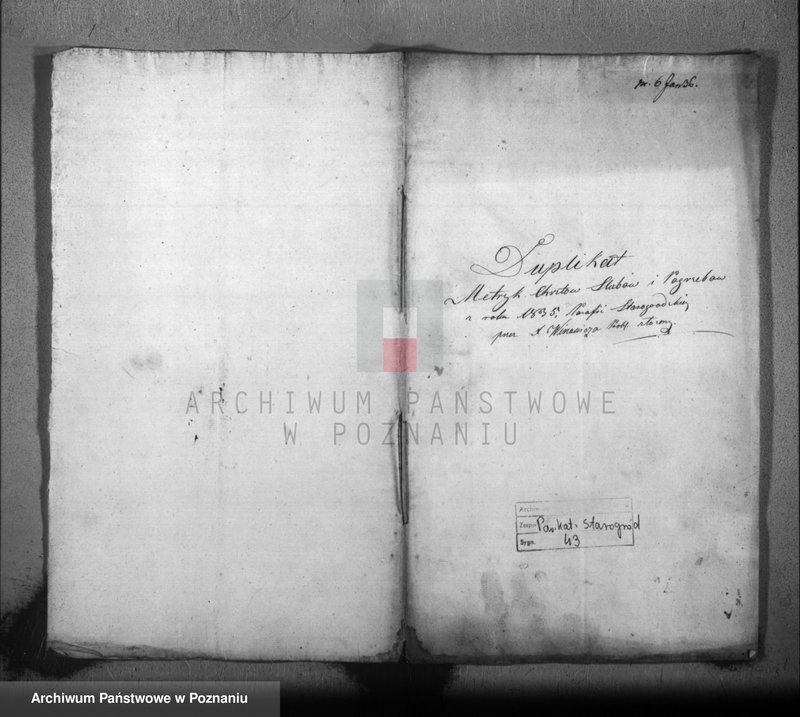 pr. 6 Jan 36.
Duplikat
Metryk Chrztów Slubów i Pogrzebów
z roku 1835, Parafii Starogrodzkiej
przez X
ARCHIWUM PAŃSTWOWE
W POZNANIU
Archiwum
Zespół Par. kat. Starogród
Sygn. 43
Archiwum Państwowe w Poznaniu